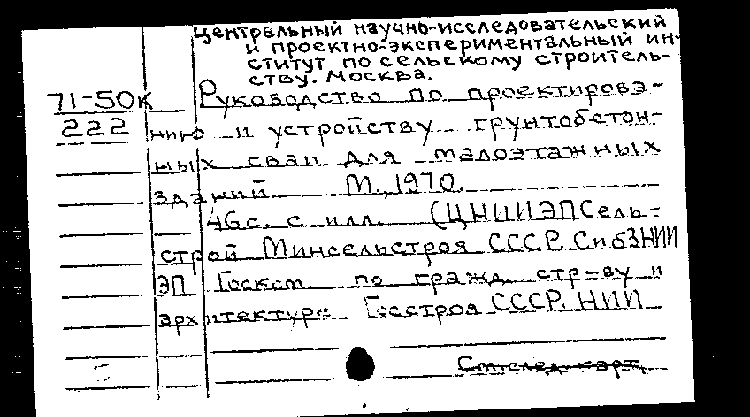 Центральный научно-исследовательский
и проектно-экспериментальный ин-
ститут по сельскому строитель-
ству. Москва.
71-50к Руководство по проектирова-
222 нию и устройству грунтобетон-
ных свай для малоэтажных
зданий. М., 1970.
46с. с илл. (ЦНИИЭПСель-
строй Минсельстроя СССР. СибЗНИИ
ЭП Госком. по гражд. стр-ву и
архитектуре Госстроя СССР. НИИ
См. след. карт.